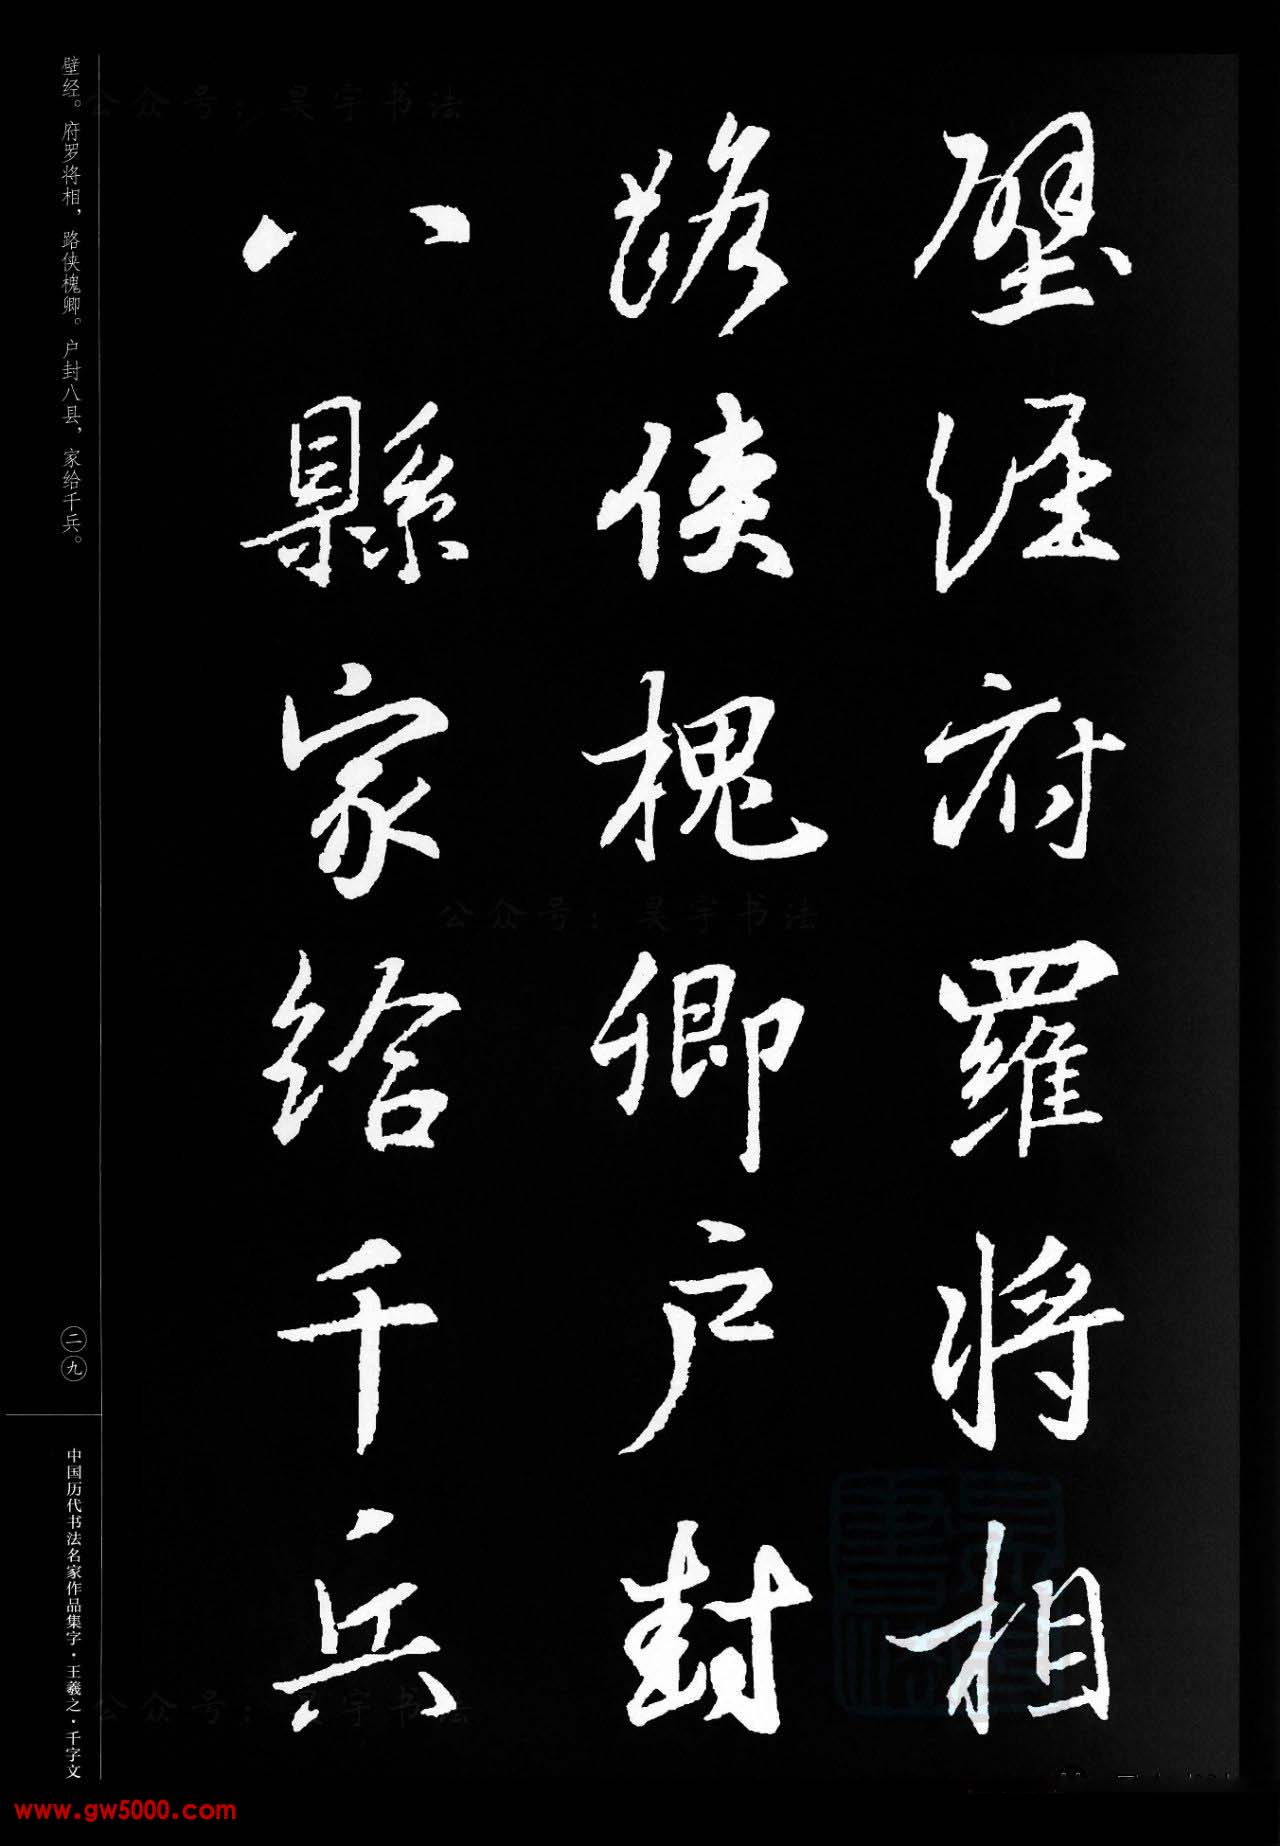 壁經府羅將相
路俠槐卿户封
八縣家給千兵
壁经。府罗将相，路侠槐卿。户封八县，家给千兵。
二九
中国历代书法名家作品集字·王羲之·千字文
公众号：昊宇书法
公众号：昊宇书法
公众号：昊宇书法
www.gw5000.com